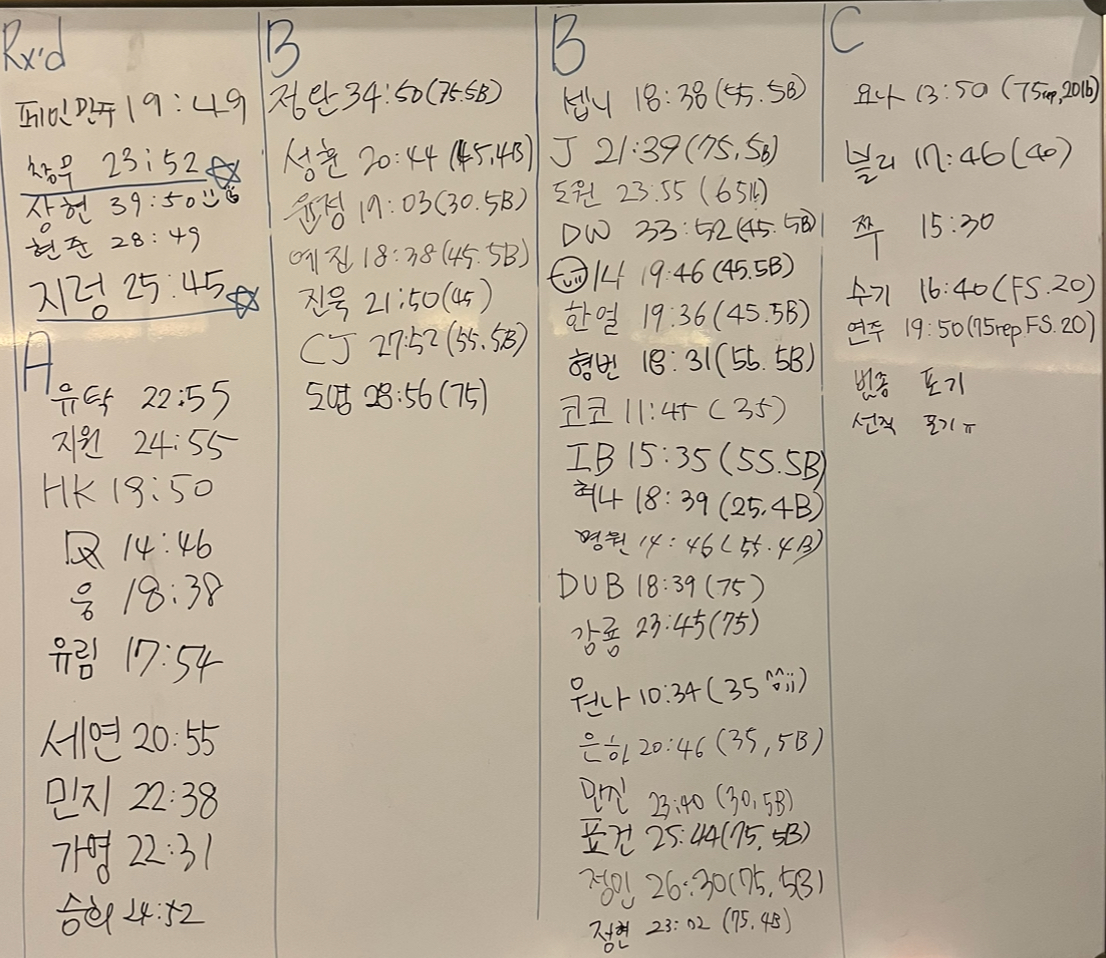 Rx'd
페민만두 19:49
창우 23:52
상현 39:50
현준 28:49
지렁 25:45
A
유탁 22:55
지원 24:55
HK 18:50
14:46
웅 18:38
유림 17:54
세연 20:55
민지 22:38
가영 22:31
승희 24:52
B
정란 34:50 (75.5B)
성훈 20:44 (45,4B)
윤정 19:03 (30.5B)
예진 18:38 (45.5B)
진욱 21:50 (45)
CJ 27:52 (55.5B)
도영 28:56 (75)
B
셉니 18:38 (55.5B)
J 21:39 (75,5B)
도원 23:55 (65lb)
DW 33:52 (45.5B)
19:46 (45.5B)
한얼 19:36 (45.5B)
형번 18:31 (55.5B)
코코 11:45 (35)
IB 15:35 (55.5B)
혀나 18:39 (25.4B)
명원 14:46 (55.4B)
DUB 18:39 (75)
강룡 23:45 (75)
원나 10:34 (35 ^^;;)
은하 20:46 (35,5B)
만진 23:40 (30,5B)
표건 25:44 (75,5B)
정민 26:30 (75,5B)
정현 23:02 (75.4B)
C
요나 13:50 (75rep,20lb)
블리 17:46 (40)
쭈 15:30
수기 16:40 (FS.20)
연주 19:50 (75rep FS.20)
범종 포기
선직 포기 ㅠ